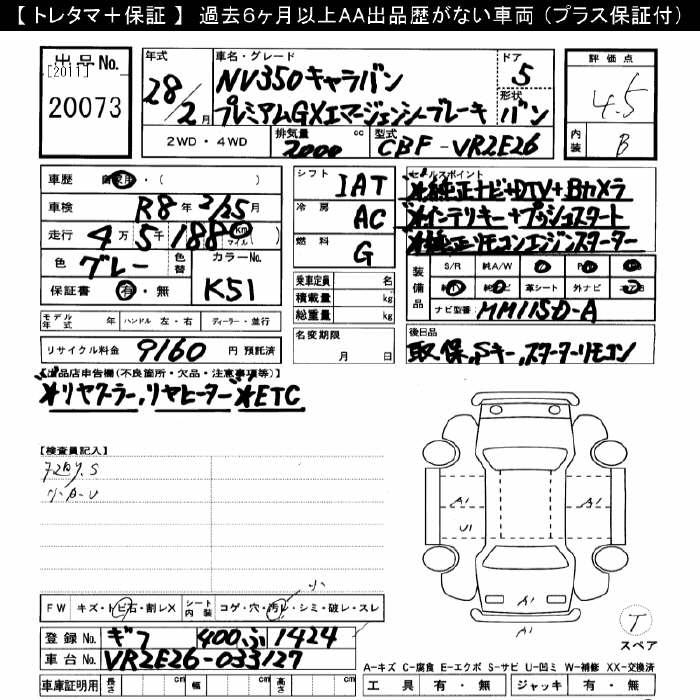 【 トレタマ＋保証 】 過去６ヶ月以上AA出品歴がない車両（プラス保証付）
出品No.
[2011]
20073
年式
28/2月
車名・グレード
NV350キャラバン
プレミアムGXエマージェンシーブレーキ
ドア
5
形状
バン
評価点
4.5
内装
B
2WD ・ 4WD
排気量
2000
cc
型式
CBF-VR2E26
車歴
自家用・( )
車検
R8年2/25月
走行
4万5千188
km
マイル
色
グレー
色替
カラーNo.
K51
保証書
有・無
シフト
IAT
冷房
AC
燃料
G
乗車定員 名
積載量 kg
総重量 kg
セールスポイント
※純正ナビ+DTV+Bカメラ
※インテリキー+プッシュスタート
※純正リモコンエンジンスターター
装備品
S/R 純A/W
革シート 外ナビ
ナビ型番 MM115D-A
モデル年式 年
ハンドル 左・右
ディーラー・並行
名変期限
月 日
後日品
取,保,Sキー,スターターリモコン
リサイクル料金 9160 円 預託済
【出品店申告欄(不良箇所・欠品・注意事項等)】
※リヤクーラー,リヤヒーター※ETC
【検査員記入】
小A・U
A1
U1
A1
A1
A1
FW
キズ・トビ石・割レX
シート内装
コゲ・穴・汚レ・シミ・破レ・スレ
小
T
スペア
登録No.
ギフ 400 ふ 1424
車台No.
VR2E26-033127
A-キズ C-腐食 E-エクボ S-サビ U-凹ミ W-補修 XX-交換済
車庫証明用
長さ cm
幅 cm
高さ cm
工具 有・無
ジャッキ 有・無